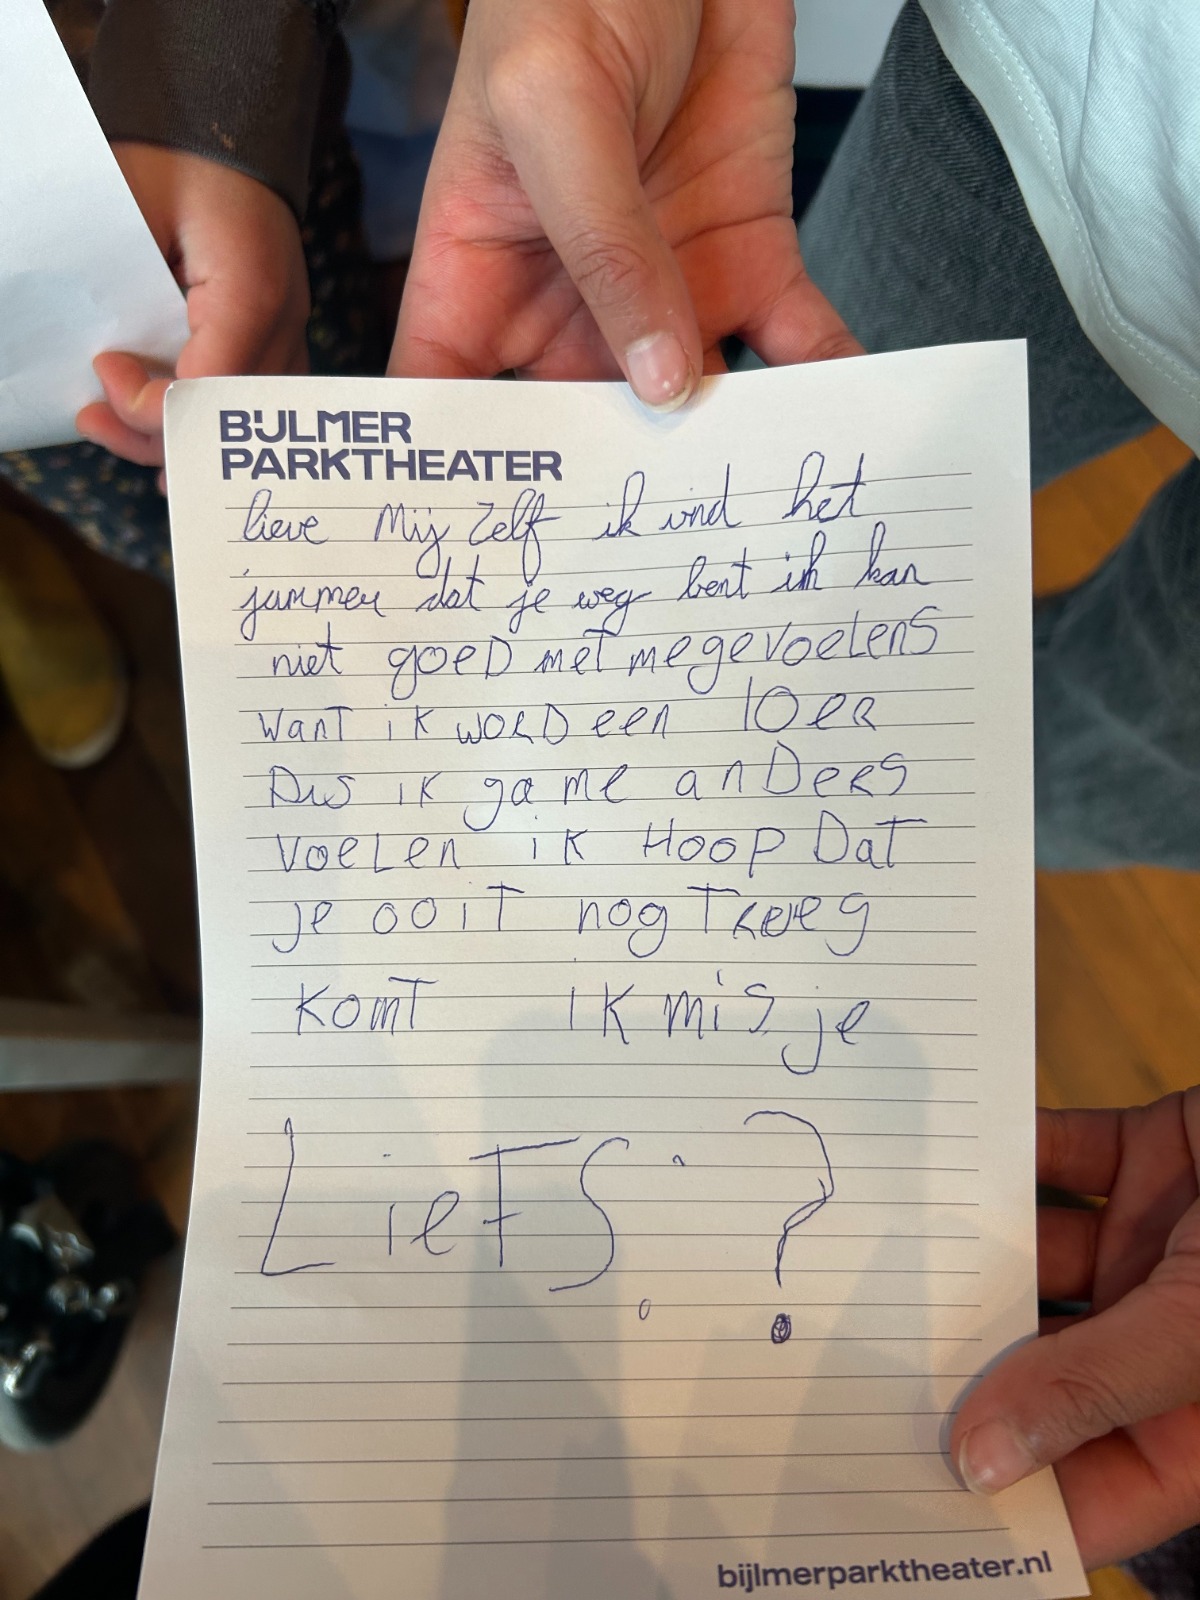 BIJLMER
PARKTHEATER
lieve Mij Zelf ik vind het
jammer dat je weg bent ik kan
niet goeD met me gevoelens
want ik worD een 10er
Dus ik ga me anDers
voelen ik Hoop Dat
je ooit nog Treweg
komt ik mis je
Liefs: ?
bijlmerparktheater.nl